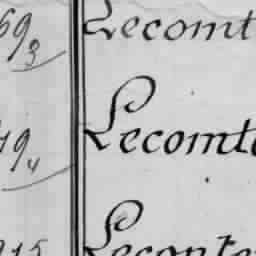 693 Lecomt
794 Lecomte
915 Leconte